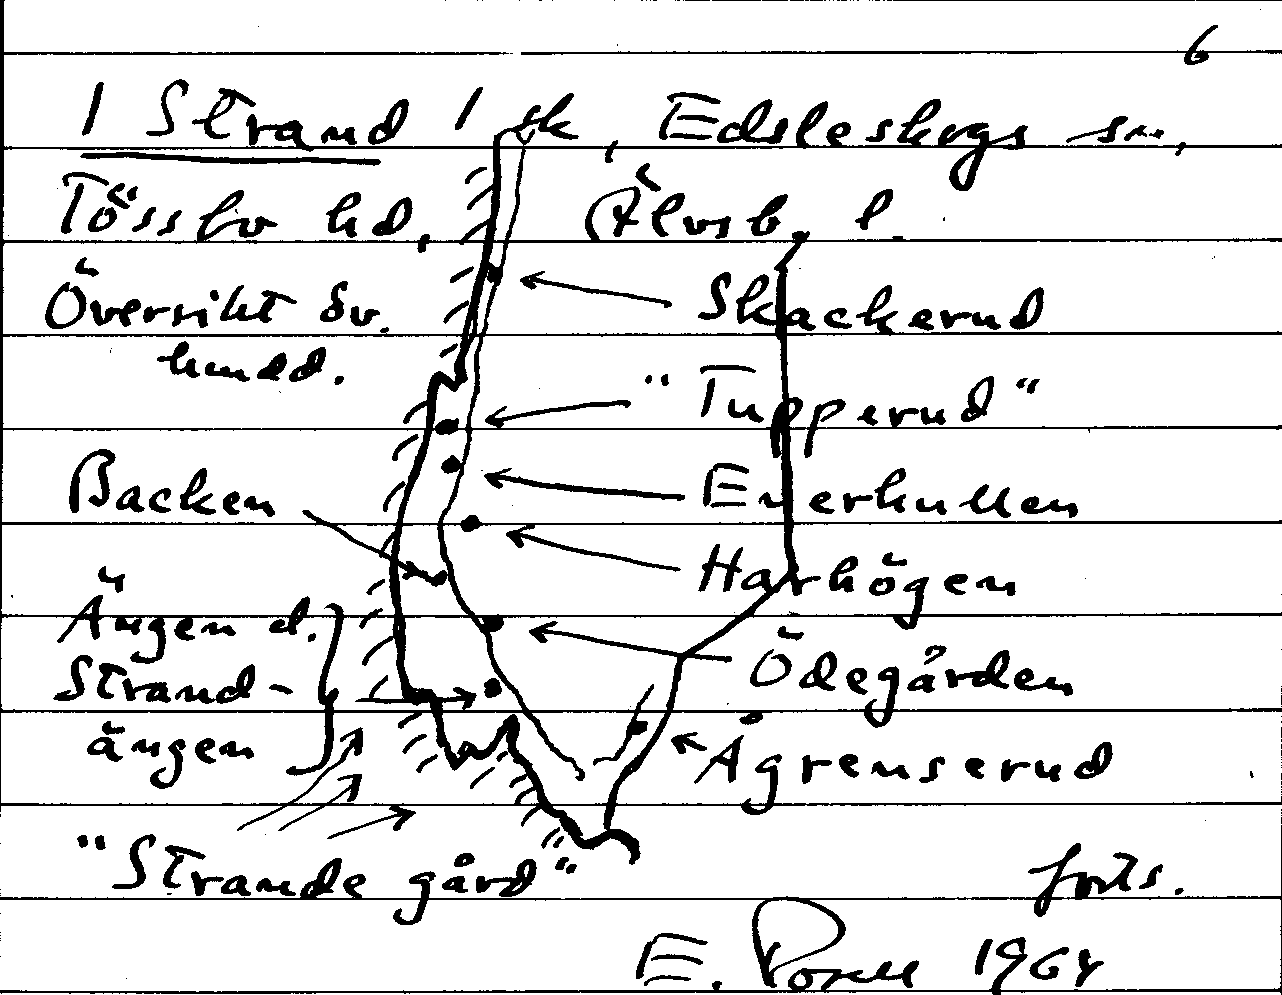 6
1 Strand 1 sk, Edsleskogs sn.,
Tössbo hd, Älvsb. l.
Översikt öv.
hmdd.
Skackerud
"Tupperud"
Backen
Enerkullen
Harhögen
Ängen el.
Strand-
ängen
Ödegården
Ågrenserud
"Strande gård"
forts.
E. 1964